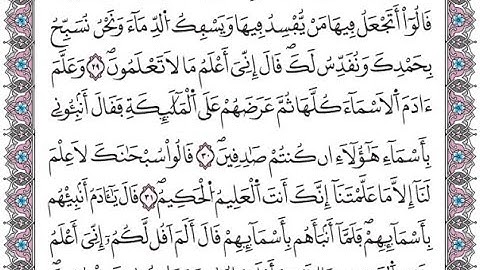 قَالُوٓاْ أَتَجْعَلُ فِيهَا مَنْ يُّفْسِدُ فِيهَا وَيَسْفِكُ اُلدِّمَآءَ وَنَحْنُ نُسَبِّحُ
بِحَمْدِكَ وَنُقَدِّسُ لَكَۖ قَالَ إِنِّيَ أَعْلَمُ مَا لَا تَعْلَمُونَۖ ٢٩ وَعَلَّمَ
ءَادَمَ اَلَاسْمَآءَ كُلَّهَا ثُمَّ عَرَضَهُمْ عَلَى اَلْمَلَٰٓئِكَةِ فَقَالَ أَنۢبِـُٔونِے
بِأَسْمَآءِ هَٰٓؤُلَآءِ ان كُنتُمْ صَٰدِقِينَۖ ٣٠ قَالُواْ سُبْحَٰنَكَ لَا عِلْمَ
لَنَآ إِلَّا مَا عَلَّمْتَنَآ إِنَّكَ أَنتَ اَلْعَلِيمُ اُلْحَكِيمُۖ ٣١ قَالَ يَٰٓـَٔادَمُ أَنۢبِئْهُم
بِأَسْمَآئِهِمْۖ فَلَمَّآ أَنۢبَأَهُم بِأَسْمَآئِهِمْ قَالَ أَلَمَ اَقُل لَّكُمُۥٓ إِنِّيَ أَعْلَمُ